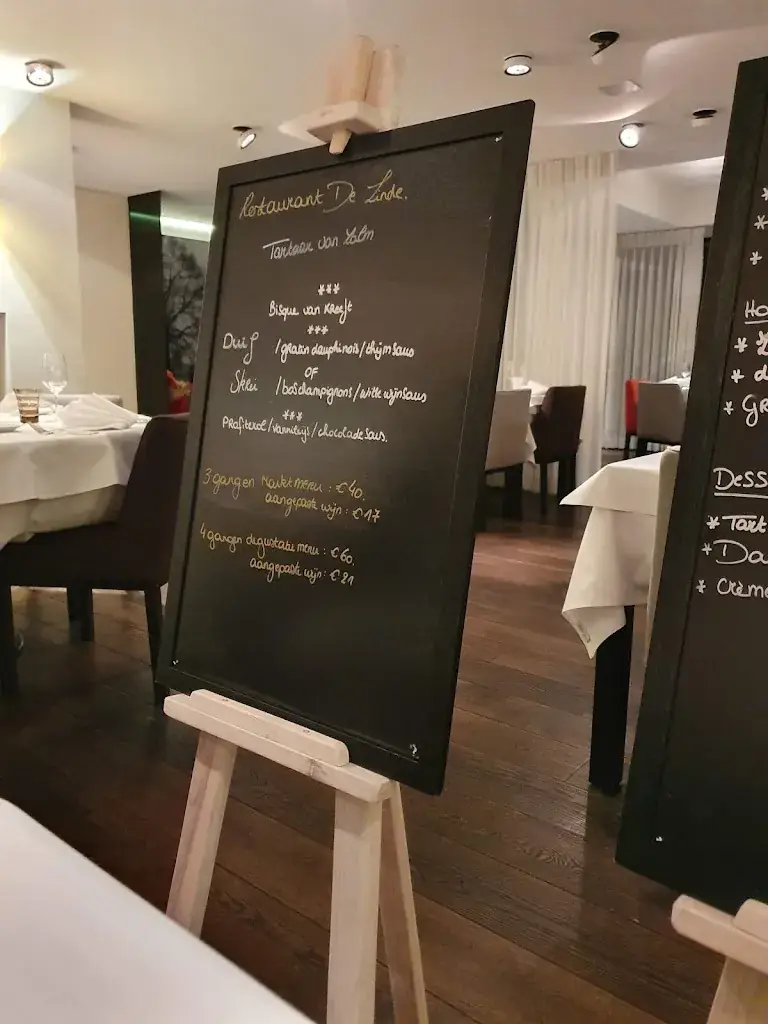 Restaurant De Linde.
Tartaar van Zalm
***
Bisque van Kreeft
***
Duif /gratin dauphinois/thijmsaus
OF
Skrei /boschampignons/witte wijnsaus
***
Profiterol/vanilleijs/chocoladesaus.
3 gangen marktmenu : €40.
aangepaste wijn : €17
4 gangen degustatie menu : €60.
aangepaste wijn : €21
*
*
*
Ho
*
* d
* Gr
Dess
* Tart
* Da
* Crème